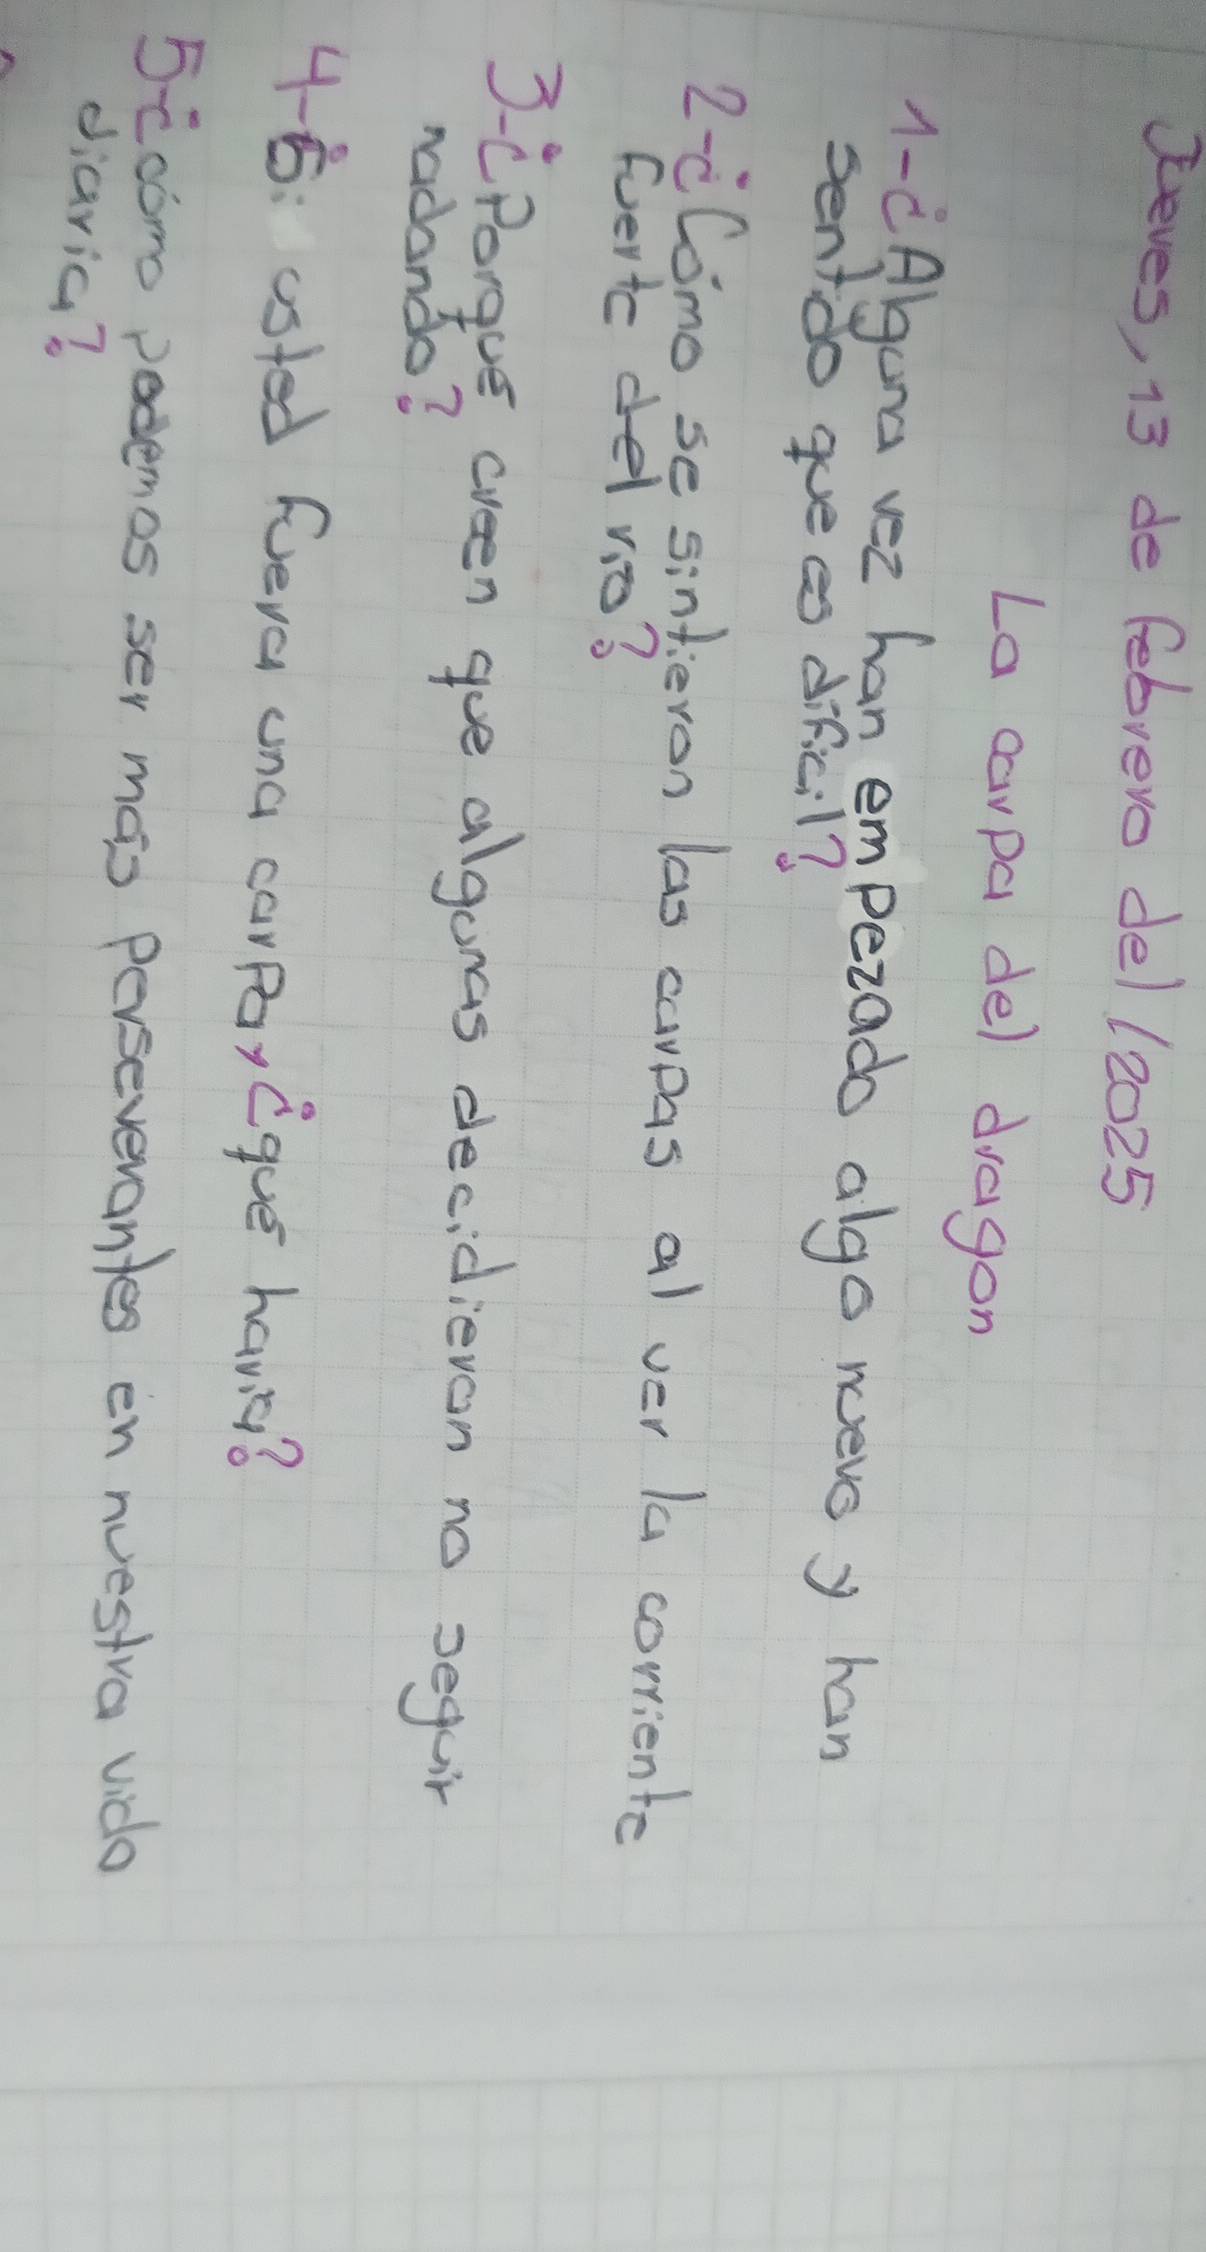 Jueves, 13 de febrero del / 2025
La carpa del dragon
1-¿Alguna vez han empezado algo nuevo y han
sentido que es dificil?
2-¿Cómo se sintieron las carpas al ver la corriente
fuerte del rio?
3-¿Porqué creen que algunas decidieron no seguir
nadando?
4-Si usted fuera una carpa, ¿qué haria?
5-¿cómo podemos ser más perseverantes en nuestra vida
diaria?